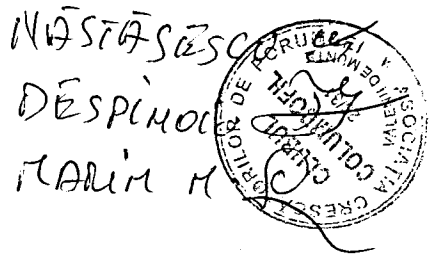 NĂSTĂSESCU
DESPINOIU
MARIN M
ASOCIAŢIA CRESCĂTORILOR DE PORUMBEI
VĂLENII DE MUNTE
CLUBUL
COLUMBOFIL